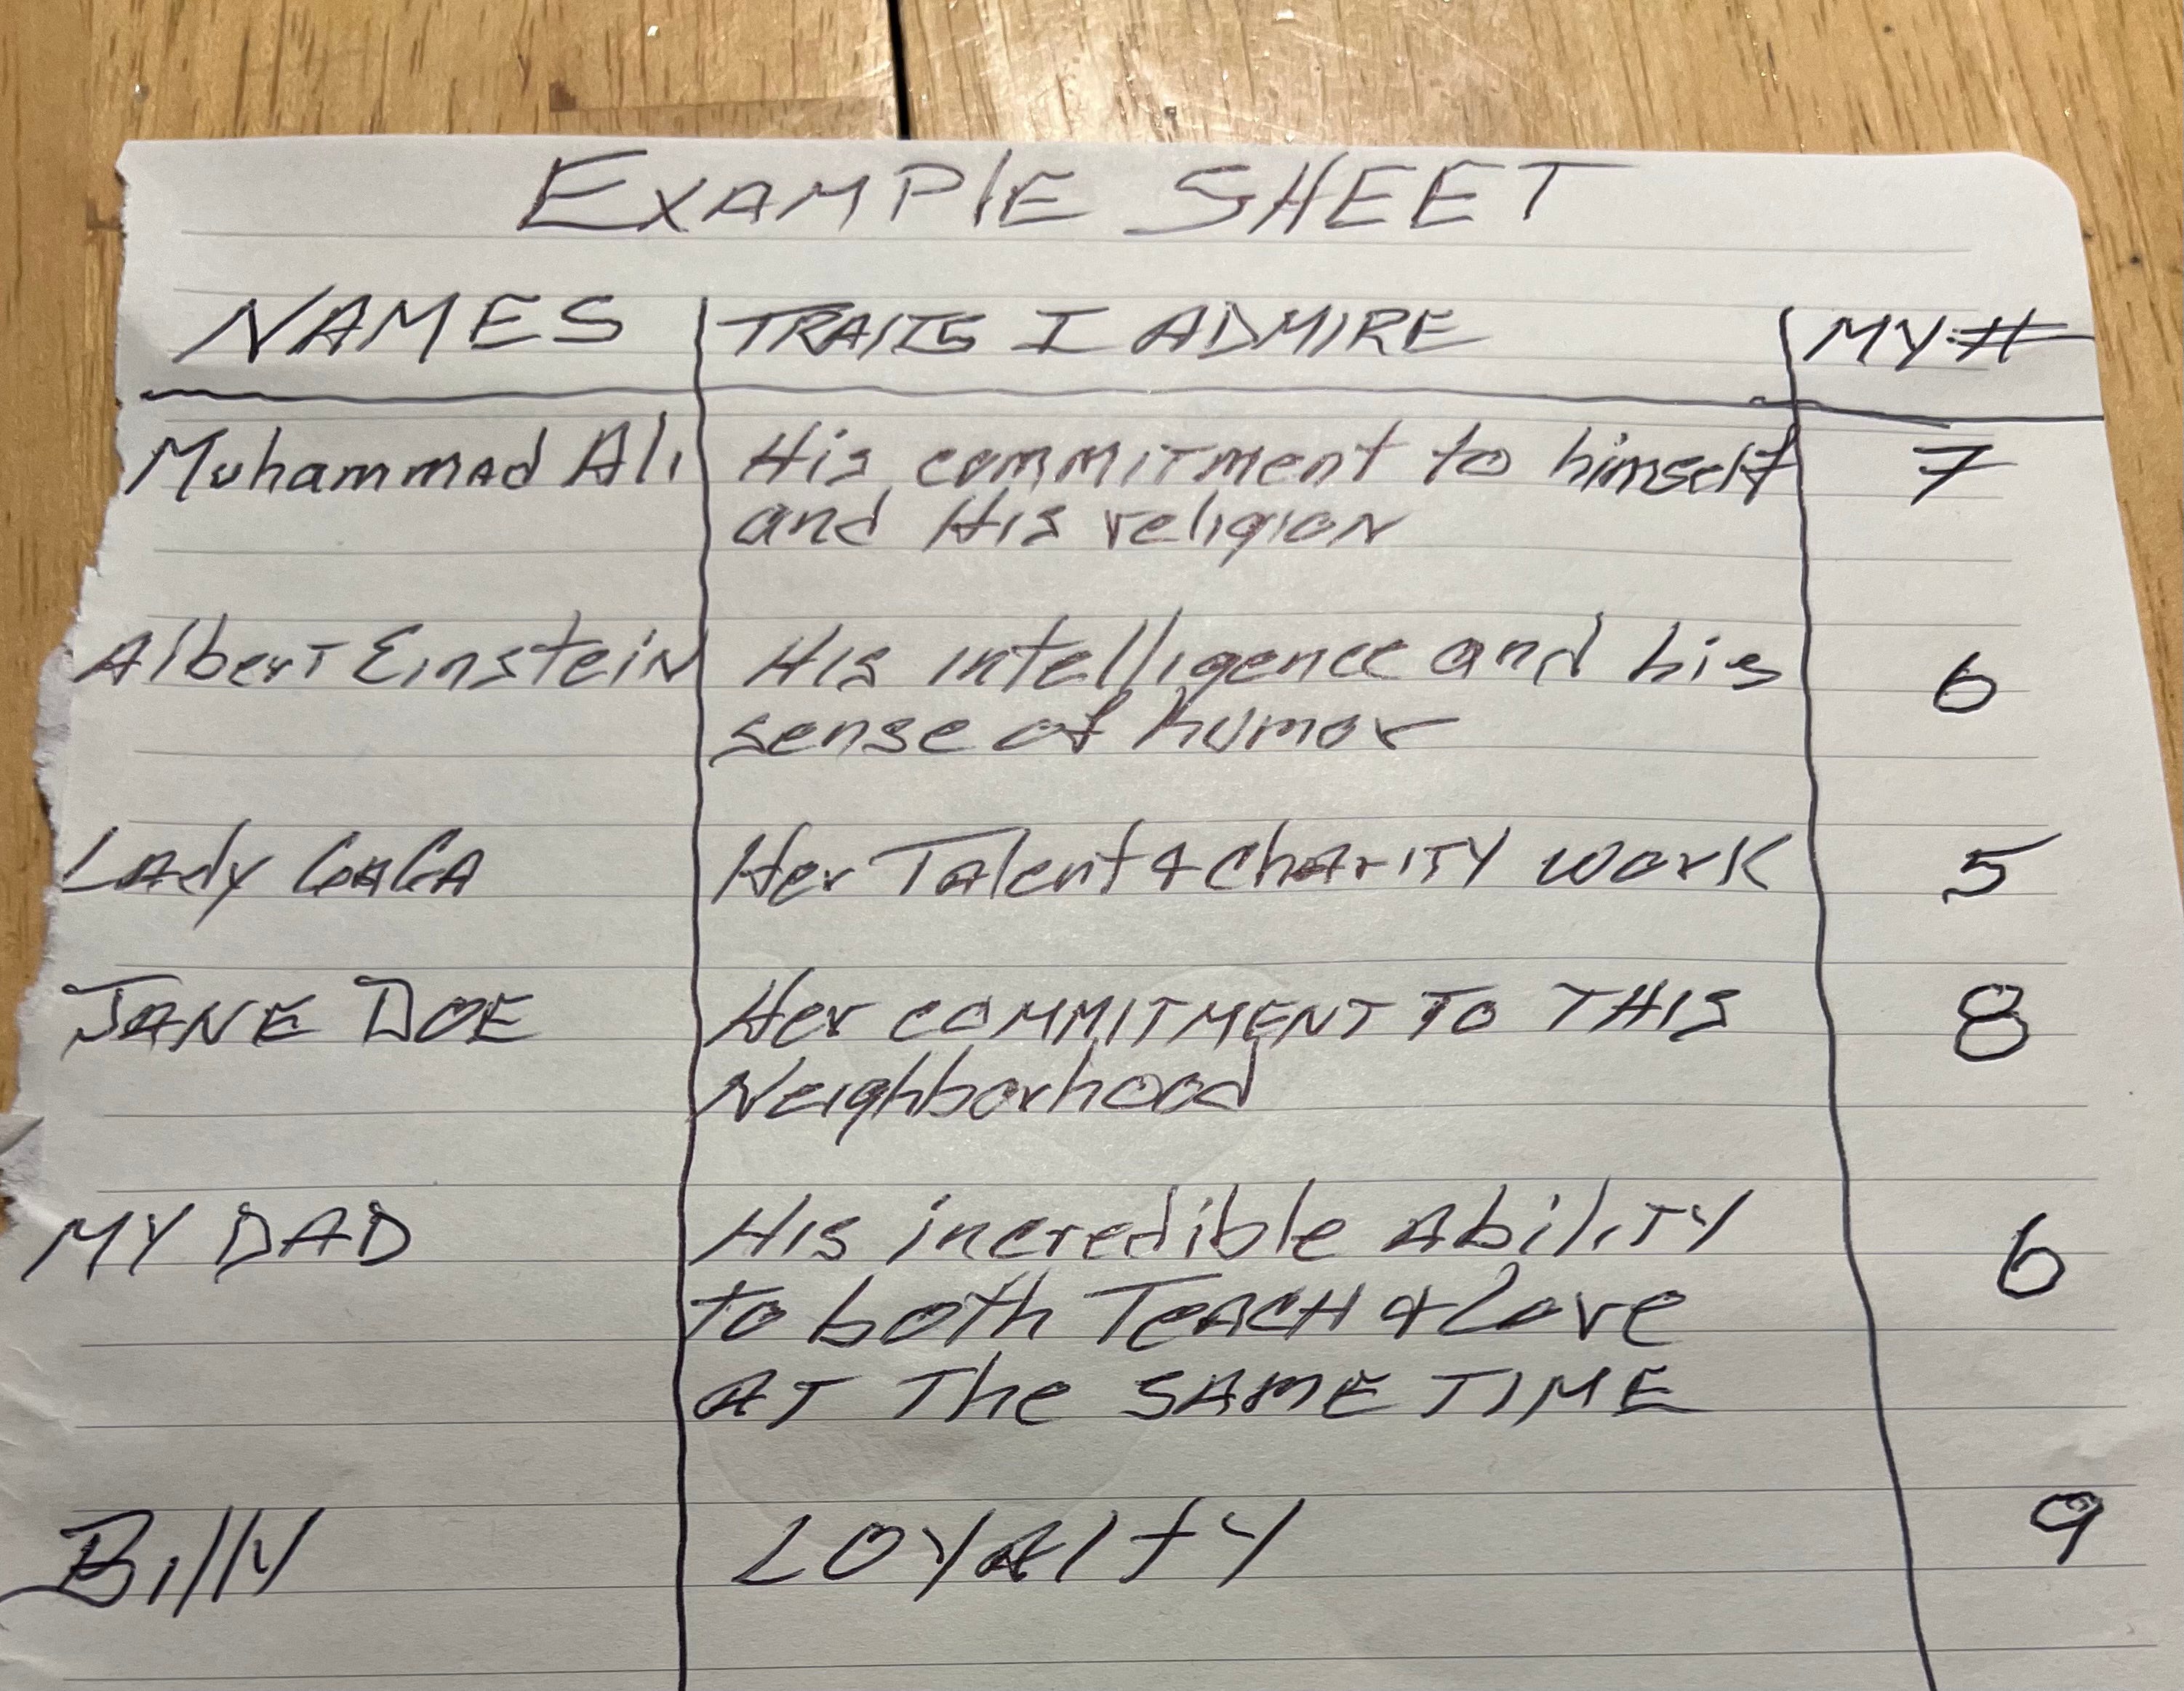 EXAMPlE SHEET
NAMES TRAITS I ADMIRE MY #
Muhammad Ali His commitment to himself 7
and His religion
Albert Einstein His intelligence and his 6
sense of humor
Lady GaGa Her Talent & Charity work 5
JANE DOE Her COMMITMENT TO THIS 8
Neighborhood
MY DAD His incredible Ability 6
to both TEACH & Love
AT The SAME TIME
Billy LOYAlty 9